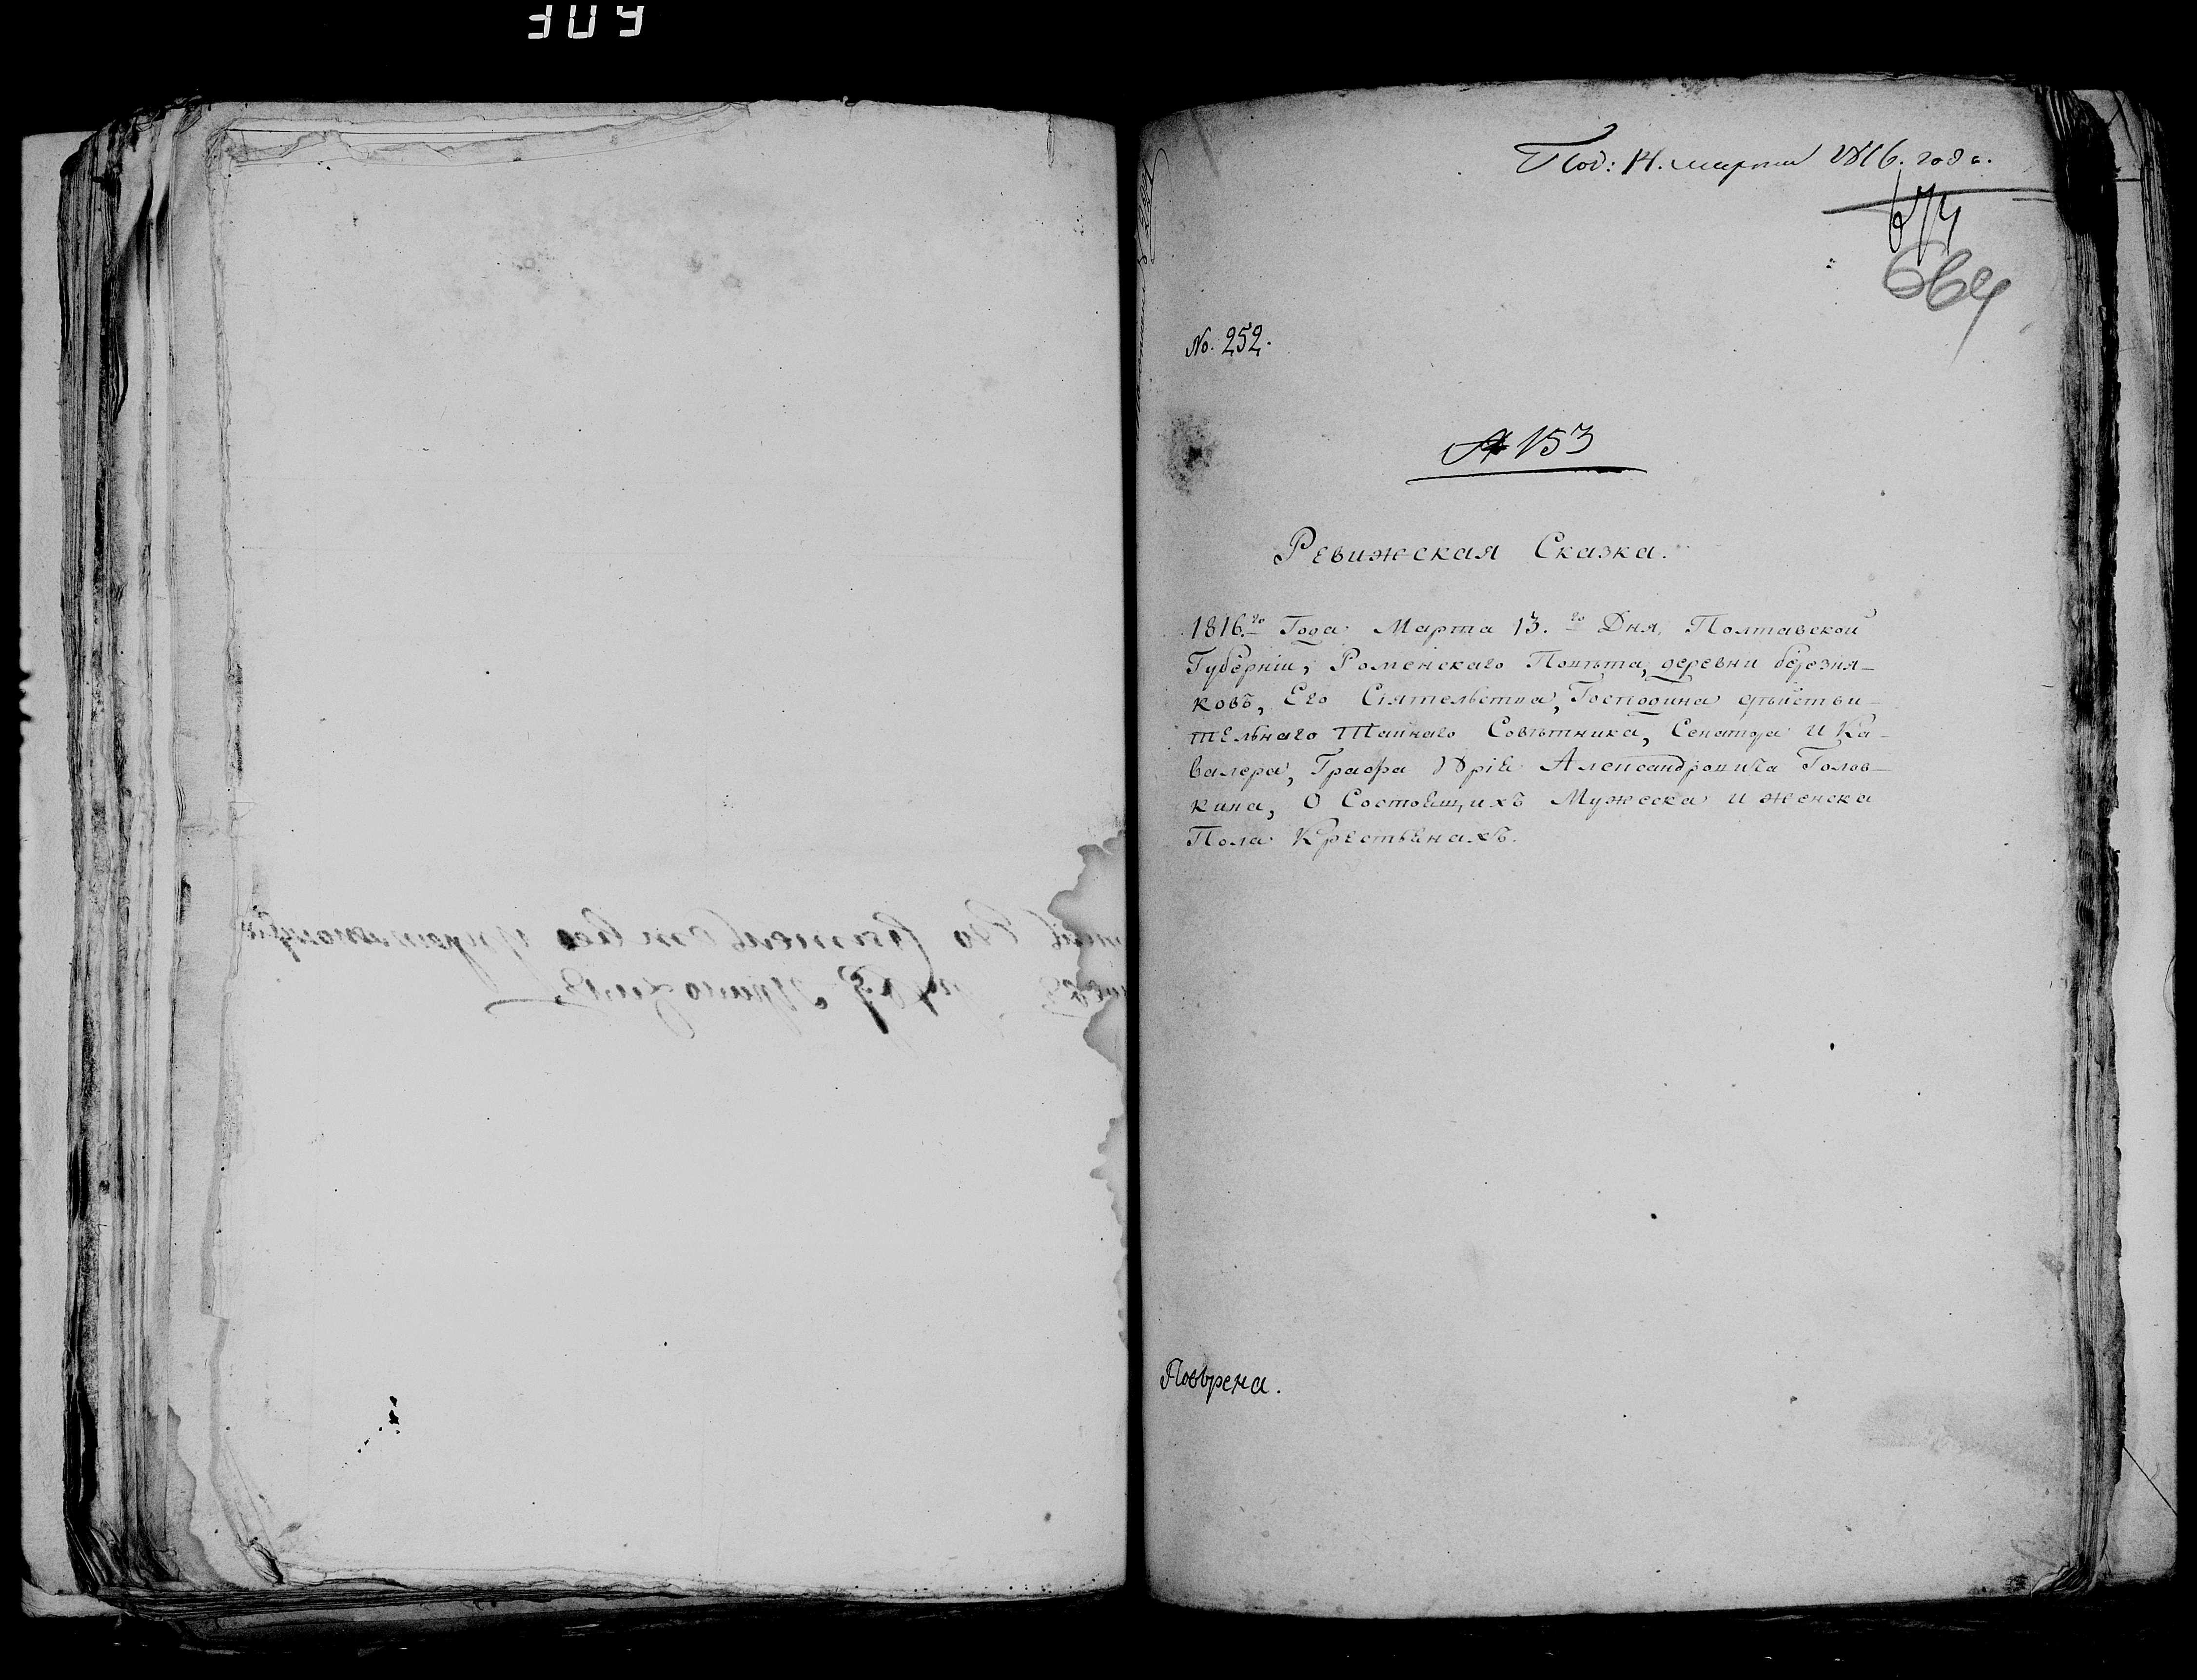 309
Под: 14. марта 1816. года.
674
664
No. 252.
№ 153
Ревижская Сказка.
1816.го Года Марта 13.го Дня, Полтавской
Губернiи, Роменскаго Повѣта, деревни березня-
ковъ, Его Сiятельства, Господина дѣйстви-
тельнаго Тайнаго Совѣтника, Сенатора и Ка-
валера, Графа Юрiя Александровича Голов-
кина, О Состоящихъ Мужеска и женска
Пола Крестьянахъ.
Повѣрена.